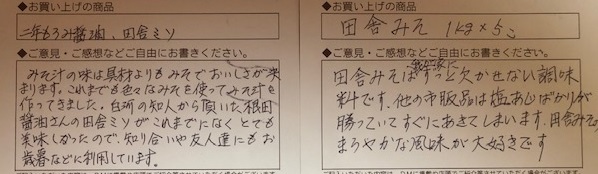 ◆お買い上げの商品
二年もろみ醤油、田舎ミソ
◆ご意見・ご感想などご自由にお書きください。
みそ汁の味は具材よりもみそでおいしさが決
まります。これまでも色々なみそを使ってみそ汁を
作ってきました。白河の知人から頂いた根田
醤油さんの田舎ミソがこれまでになくとても
美味しかったので、知り合いや友人達にもお
歳暮などに利用しています。
◆お買い上げの商品
田舎みそ 1kg×5コ
◆ご意見・ご感想などご自由にお書きください。
田舎みそは我が家にずっと欠かせない調味
料です。他の市販品は塩あじばかりが
勝っていてすぐにあきてしまいます。田舎みその
まろやかな風味が大好きです